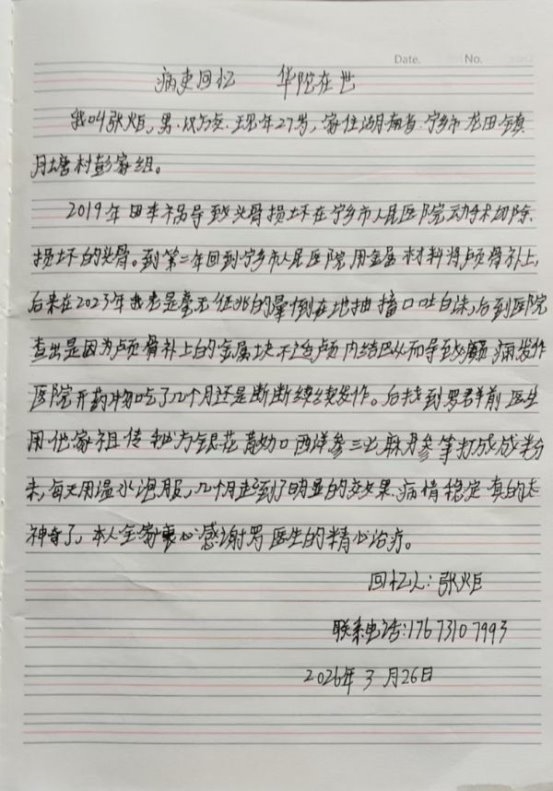 Date. No.
病吏回忆 华陀在世
我叫张炬，男.汉族.现年27岁，家住湖南省.宁乡市龙田镇
月塘村彭家组。
2019年因车祸导致头骨损坏在宁乡市人民医院动手术切除.
损坏的头骨。到第二年回到宁乡市人民医院用金属材料将颅骨补上，
后来在2023年我老是毫无征兆的晕倒在地抽搐口吐白沫，后到医院
查出是因为颅骨补上的金属块不适颅内结巴从而导致癫痫病发作
医院开药物吃了几个月还是断断续续发作。后找到罗君前医生
用他家祖传秘方银花 西洋参三七麻丹参等打成成粉
末，每天用温水温服，几个月达到了明显的效果.病情稳定真的太
神奇了，本人全家衷心感谢罗医生的精心治疗。
回忆人：张炬
联系电话：17673107993
2026年3月26日